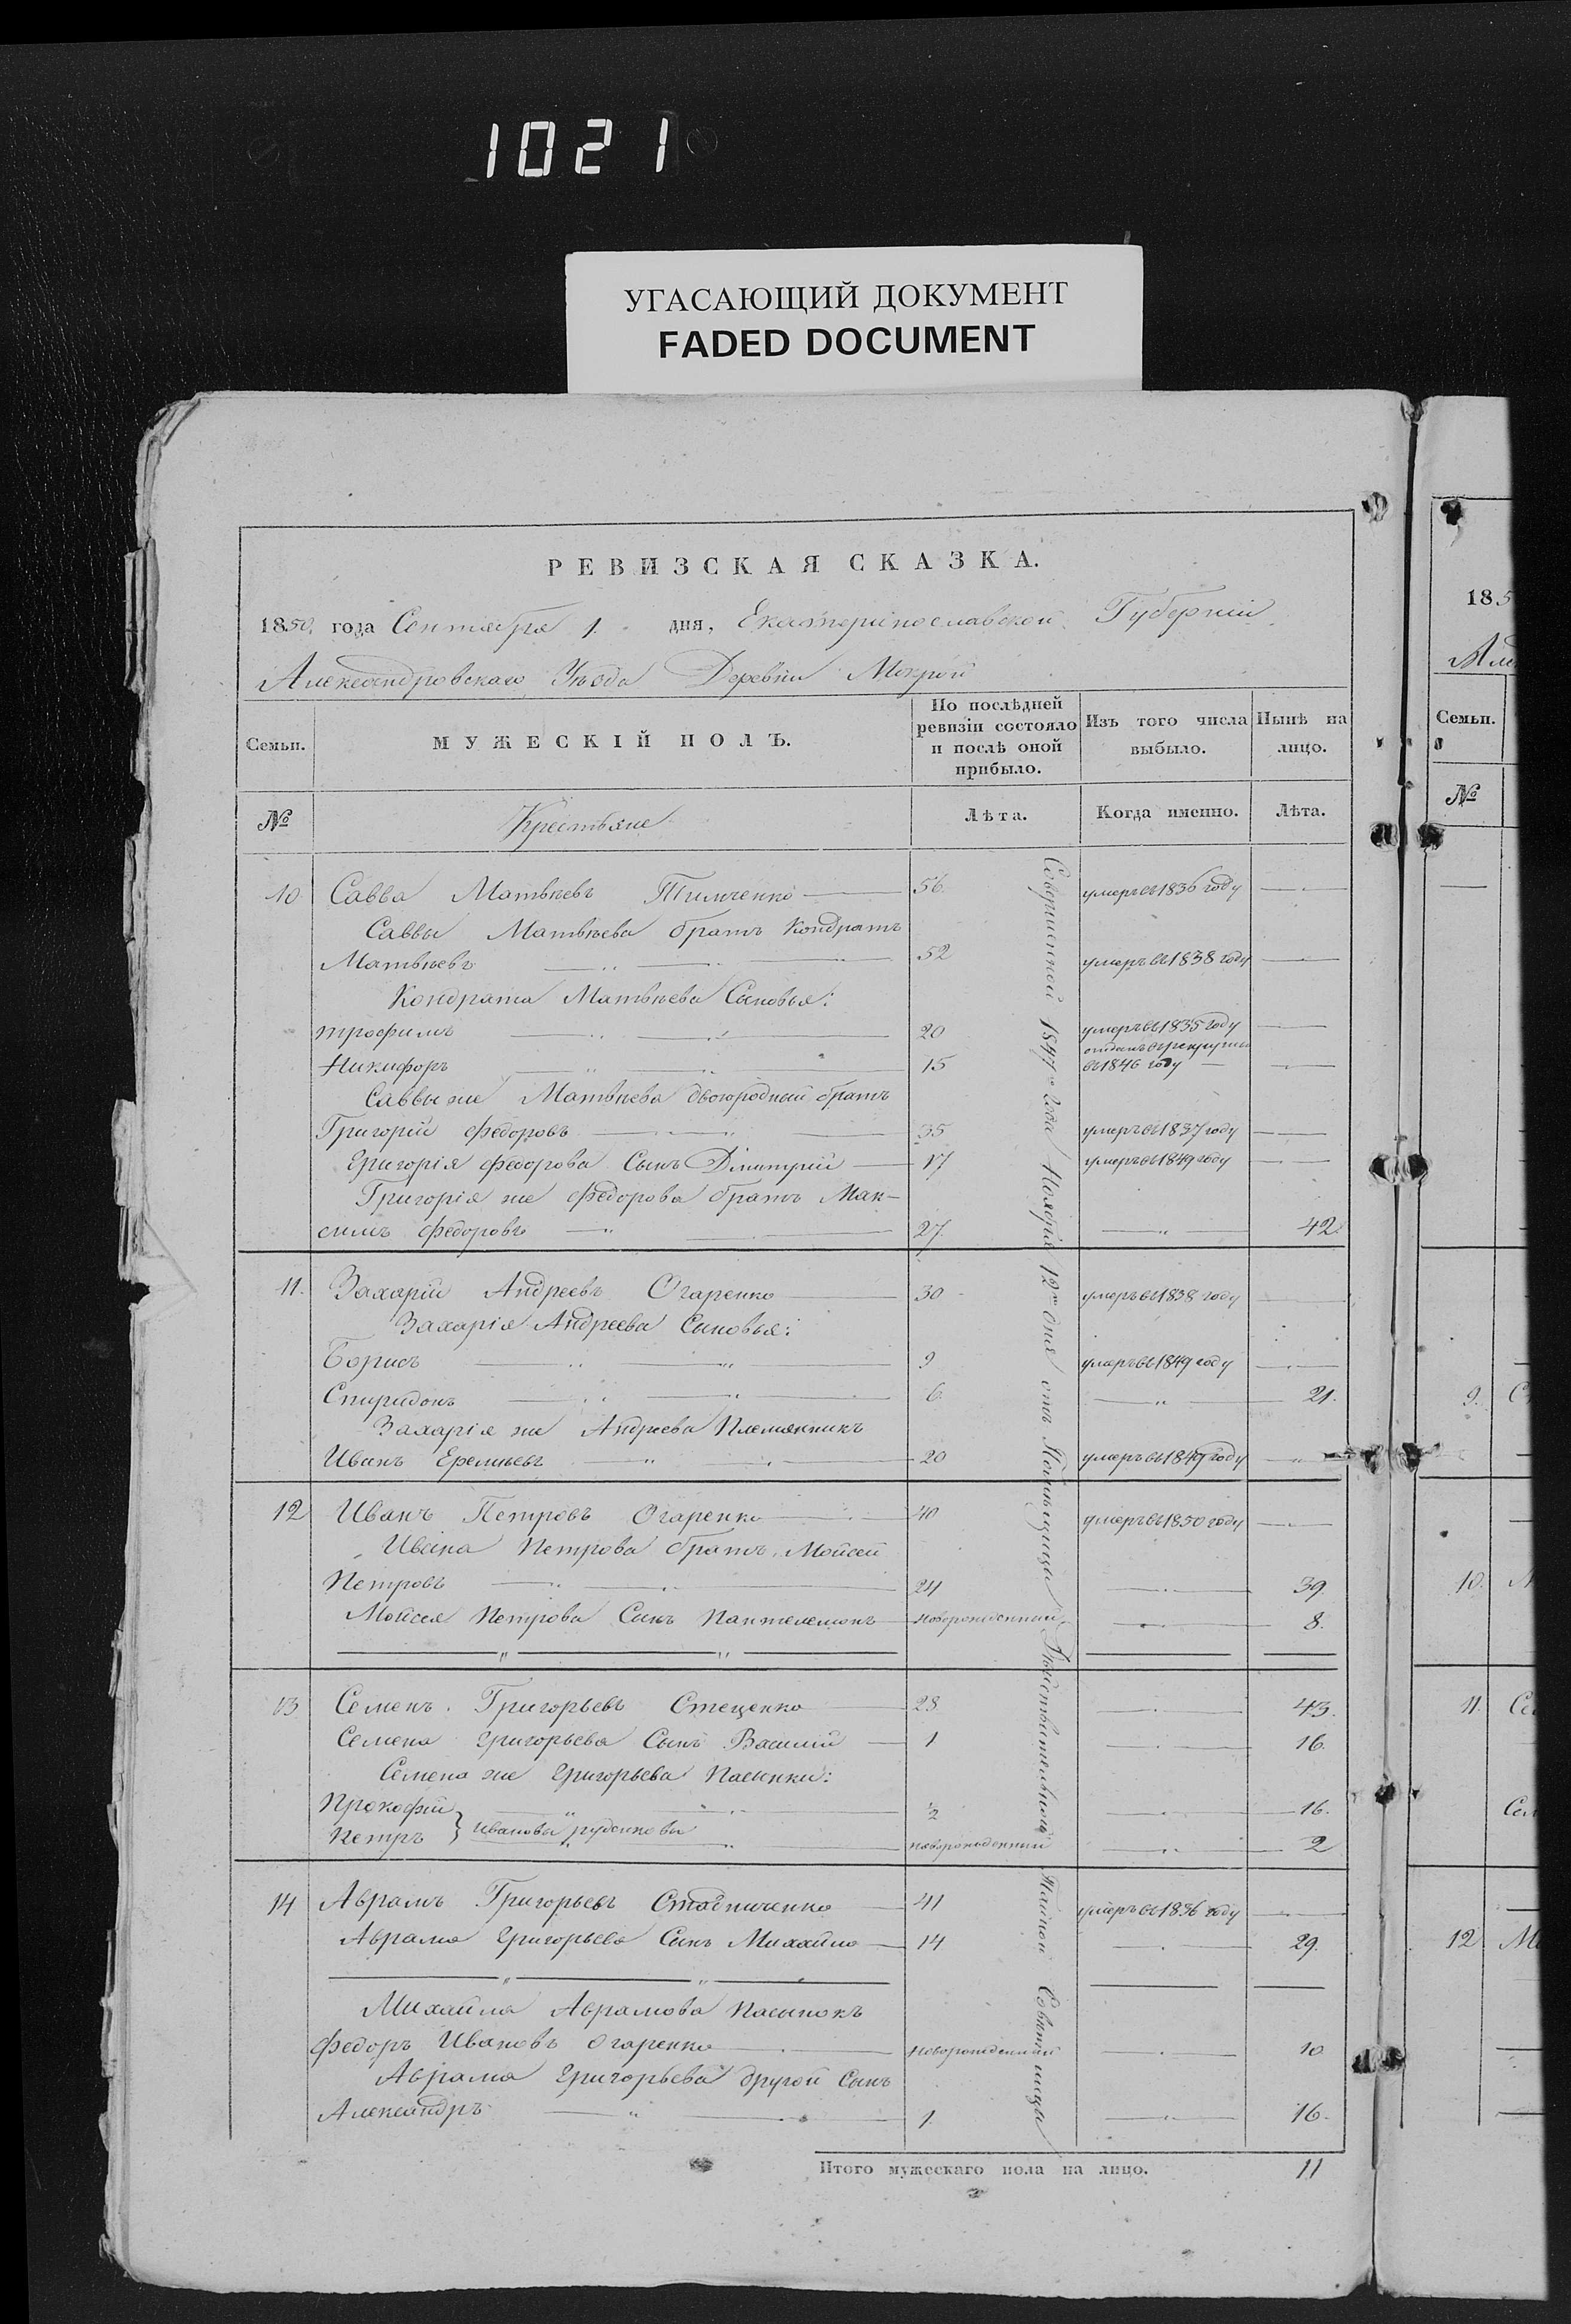 1021
УГАСАЮЩИЙ ДОКУМЕНТ
FADED DOCUMENT
РЕВИЗСКАЯ СКАЗКА.
1850. года Сентября 1. дня, Екатеринославской Губернии
Александровскаго Уѣзда Деревни Мокрой
Семьи. МУЖЕСКІЙ ПОЛЪ. По послѣдней ревизіи состояло и послѣ оной прибыло. Изъ того числа выбыло. Нынѣ на лицо.
№ Крестьяне Лѣта. Когда именно. Лѣта.
10 Савва Матвѣевъ Тимченко 56. умеръ въ 1836 году
Саввы Матвѣева братъ Кондратъ
Матвѣевъ 52 умеръ въ 1838 году
Кондрата Матвѣева Сыновья:
Трофимъ 20 умеръ въ 1835 году
Никифоръ 15 отданъ въ рекруты въ 1846 году
Саввы же Матвѣева двоюродный братъ
Григорій Федоровъ 35 умеръ въ 1837 году
Григорія Федорова Сынъ Дмитрій 17 умеръ въ 1849 году
Григорія же Федорова братъ Мак-
симъ Федоровъ 27. 42.
11. Захарій Андреевъ Огаренко 30 умеръ въ 1838 году
Захарія Андреева Сыновья:
Борисъ 9 умеръ въ 1849 году
Спиридонъ 6. 21.
Захарія же Андреева Племянникъ
Иванъ Еремѣевъ 20 умеръ въ 1849 году
12 Иванъ Петровъ Огаренко 40 умеръ въ 1850 году
Ивана Петрова братъ Мойсей
Петровъ 24 39.
Мойсея Петрова Сынъ Пантелемонъ новорожденный 8.
13 Семенъ Григорьевъ Стеценко 28 43.
Семена Григорьева Сынъ Василій 1 16.
Семена же Григорьева Пасынки:
Прокофій ½ 16.
Петръ } Ивановы Руденковы новорожденный 2
14 Аврамъ Григорьевъ Стадниченко 41 умеръ въ 1836 году
Аврама Григорьева Сынъ Михайло 14 29.
Михайла Аврамова пасынокъ
Федоръ Ивановъ Огаренко новорожденный 10
Аврама Григорьева другой Сынъ
Александръ 1. 16.
Итого мужескаго пола на лицо. 11
Совершенной 1847го года Ноября 12го дня отъ Помѣщицы Дѣйствительной Тайной Совѣтницы
185
Але
Семьи.
№
9. С
10.
11. Се
Сем
12 Ми